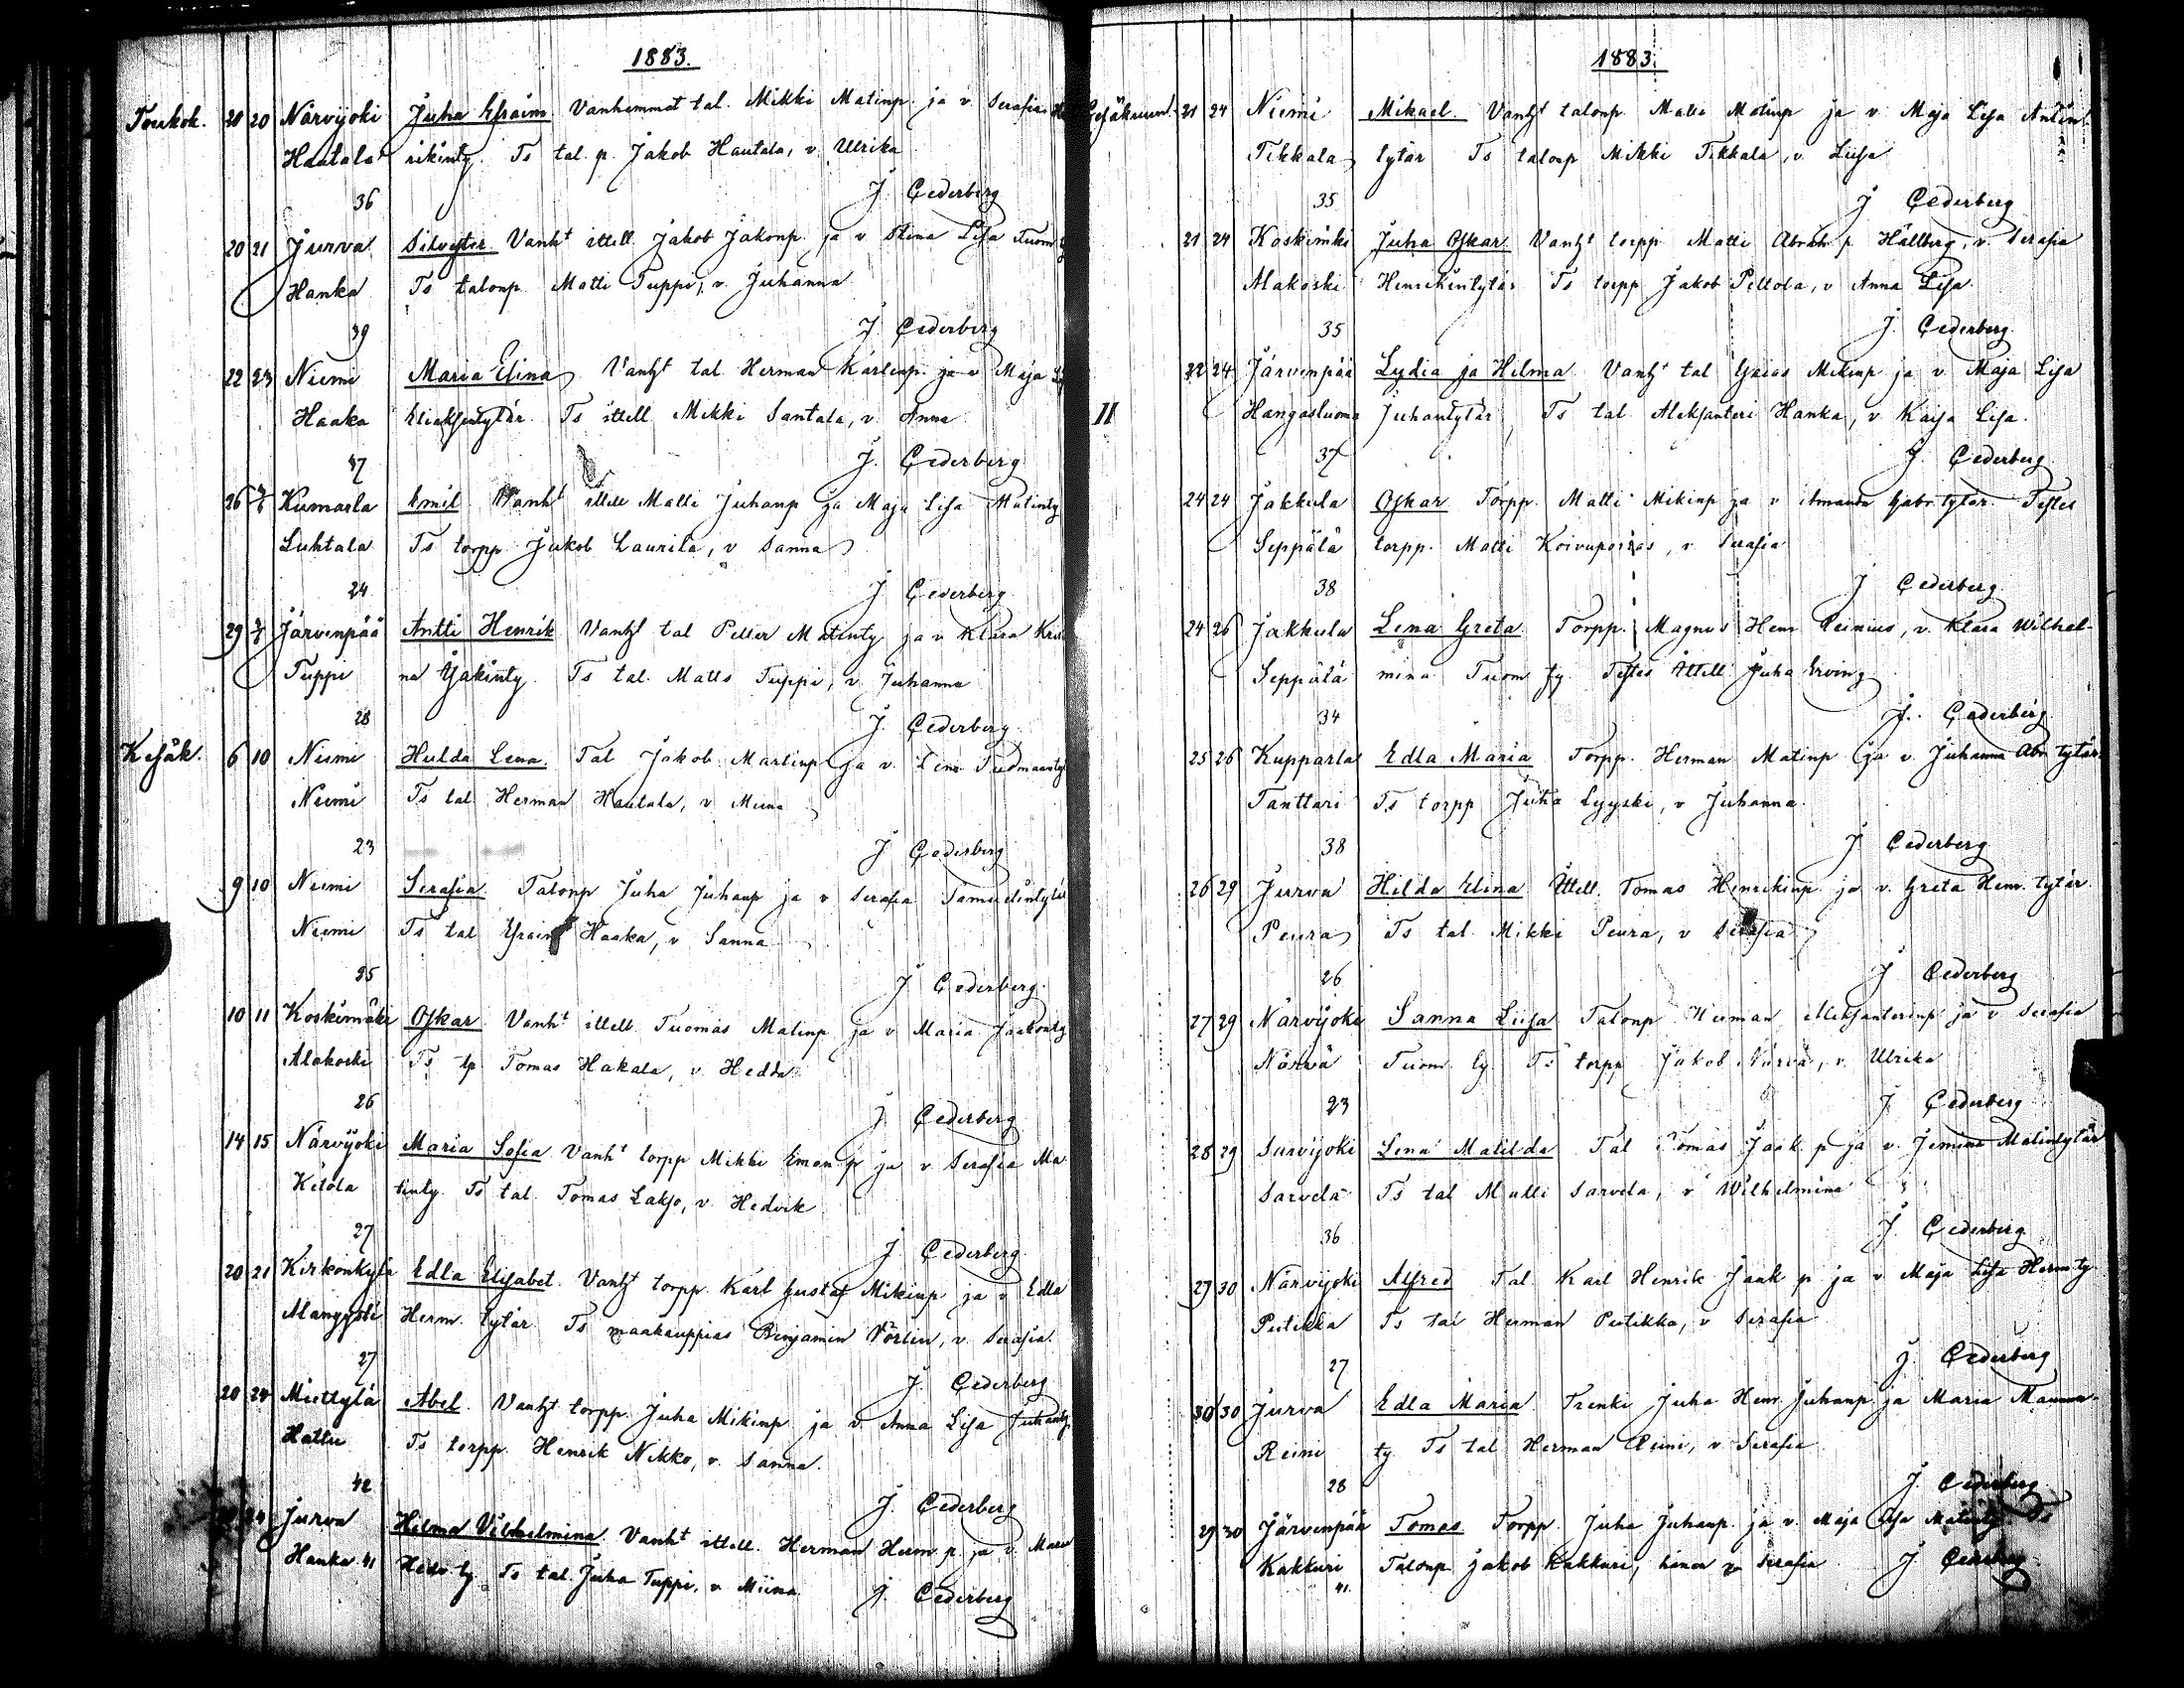 1883.
Toukok. 20 20 Närvijoki Juha Efraim Vanhemmat tal. Mikki Matinp. ja v. Serafia
Hautala rikinty. Ts tal. p. Jakob Hautala, v. Ulrika
36 J. Cederberg
20 21 Jurva Silvester Vanht ittell. Jakob Jakonp. ja v. Stina Lisa Tuom
Hanka Ts talonp. Matti Tuppi, v. Juhanna
39 J. Cederberg
22 23 Niemi Maria Elina Vanht tal. Herman Karlinp. ja v. Maja
Haaka Eliaksentytär. Ts ittell. Mikki Santala, v. Anna
37 J. Cederberg
26 Kumarla Emil Vanht ittell Matti Juhanp ja Maja Lisa Matinty
Luhtala Ts torpp. Jakob Laurila, v Sanna
24 J. Cederberg
29 Järvenpää Antti Henrik Vanht tal Petter Matinty ja v. Klara Kris
Tuppi na Isakinty. Ts tal. Matts Tuppi, v. Juhanna
28 J. Cederberg
Kesäk. 6 10 Niemi Hulda Lena. Tal Jakob Martinp ja v. Lina
Niemi Ts tal. Herman Hautala, v. Miina
23 J Cederberg
9 10 Niemi Serafia Talonp Juha Juhanp ja v Serafia Samuelintytär
Niemi Ts tal Efraim Haaka, v Sanna
35 J Cederberg
10 11 Koskimäki Oskar Vanht ittell. Tuomas Matinp ja v Maria Jaakonty
Alakoski Ts tp Tomas Hakala, v. Hedda
26 J. Cederberg
14 15 Närvijoki Maria Sofia Vanht torpp Mikki Eman. p ja v Serafia Ma
Ketola tinty. Ts tal. Tomas Lakso, v. Hedvik
27 J. Cederberg
20 21 Kirkonkylä Edla Elisabet. Vanht torpp. Karl Gustaf Mikinp ja v Edla
Herm. tytär. Ts maakauppias Benjamin Vörlin, v. Serafia
27 J. Cederberg
20 24 Miettylä Abel. Vanht torpp. Juha Mikinp ja v. Anna Lisa Juhanty
Hattu Ts torpp. Henrik Nikko, v. Sanna.
42 J. Cederberg
24 Jurva Hilma Vilhelmina. Vanht ittell. Herman Herm. p. ja v. Maria
Hanka 41 Hedv. ty. Ts tal. Juha Tuppi, v. Miina. J. Cederberg
1883.
Kesäkuun. 21 24 Niemi Mikael. Vanht talonp. Matti Matinp ja v. Maja Lisa Antin
Tikkala tytär Ts talonp Mikki Tikkala, v. Liisa
35 J Cederberg
21 24 Koskimki Juha Oskar Vanht torpp. Matti Abrah. p Hällberg, v. Serafia
Alakoski Henrikintytär Ts torpp Jakob Peltola, v Anna Lisa.
35 J. Cederberg
22 24 Järvenpää Lydia ja Hilma Vanht tal Esaias Mikinp ja v. Maja Lisa
II Hangasluoma Juhantytär, Ts tal. Aleksanteri Hanka, v. Kaisa Lisa.
37 J. Cederberg
24 24 Jakkula Oskar Torpp. Matti Mikinp ja v Amanda Gabr. tytär. Testes
Seppälä torpp. Matti Koivuporras, v. Serafia
38 J Cederberg
24 26 Jakkula Lena Greta. Torpp. Magnus Henr Reinius, v. Klara Wilhel-
Seppälä mina Tuom ty. Testes Ittell Juha Erving
34 J. Cederberg
25 26 Kupparla Edla Maria Torpp. Herman Matinp ja v. Juhanna Abr tytär.
Tanttari Ts torpp Juha Lyyski, v Juhanna.
38 J Cederberg
26 29 Jurva Hilda Elina Ittell. Tomas Henrikinp ja v. Greta Henr. tytär.
Peura Ts tal. Mikki Peura, v Serafia
26 J Cederberg
27 29 Närvijoki Sanna Liisa Talonp Herman Aleksanterinp ja v Serafia
Närvä Tuom. ty. Ts torpp Jakob Närvä, v. Ulrika
23 J Cederberg
28 29 Sarvijoki Lena Matilda Tal Tomas Jaak. p ja v. Jemina Matintytär
Sarvela Ts tal Matti Sarvela, v Wilhelmina
36 J Cederberg
29 30 Närvijoki Alfred Tal. Karl Henrik Jaak p ja v Maja Lisa Herm ty.
Peitikka Ts tal Herman Peitikka, v Serafia
27 J. Cederberg
30 30 Jurva Edla Maria Trenki Juha Henr. Juhanp ja Maria
Reini ty. Ts tal Herman Reini, v. Serafia
28 J. Cederberg
29 30 Järvenpää Tomas Torpp. Juha Juhanp. ja v. Maja Lisa Matinty. Ts
Kakkuri Talonp Jakob Kakkuri, hänen v Serafia J. Cederberg
41.